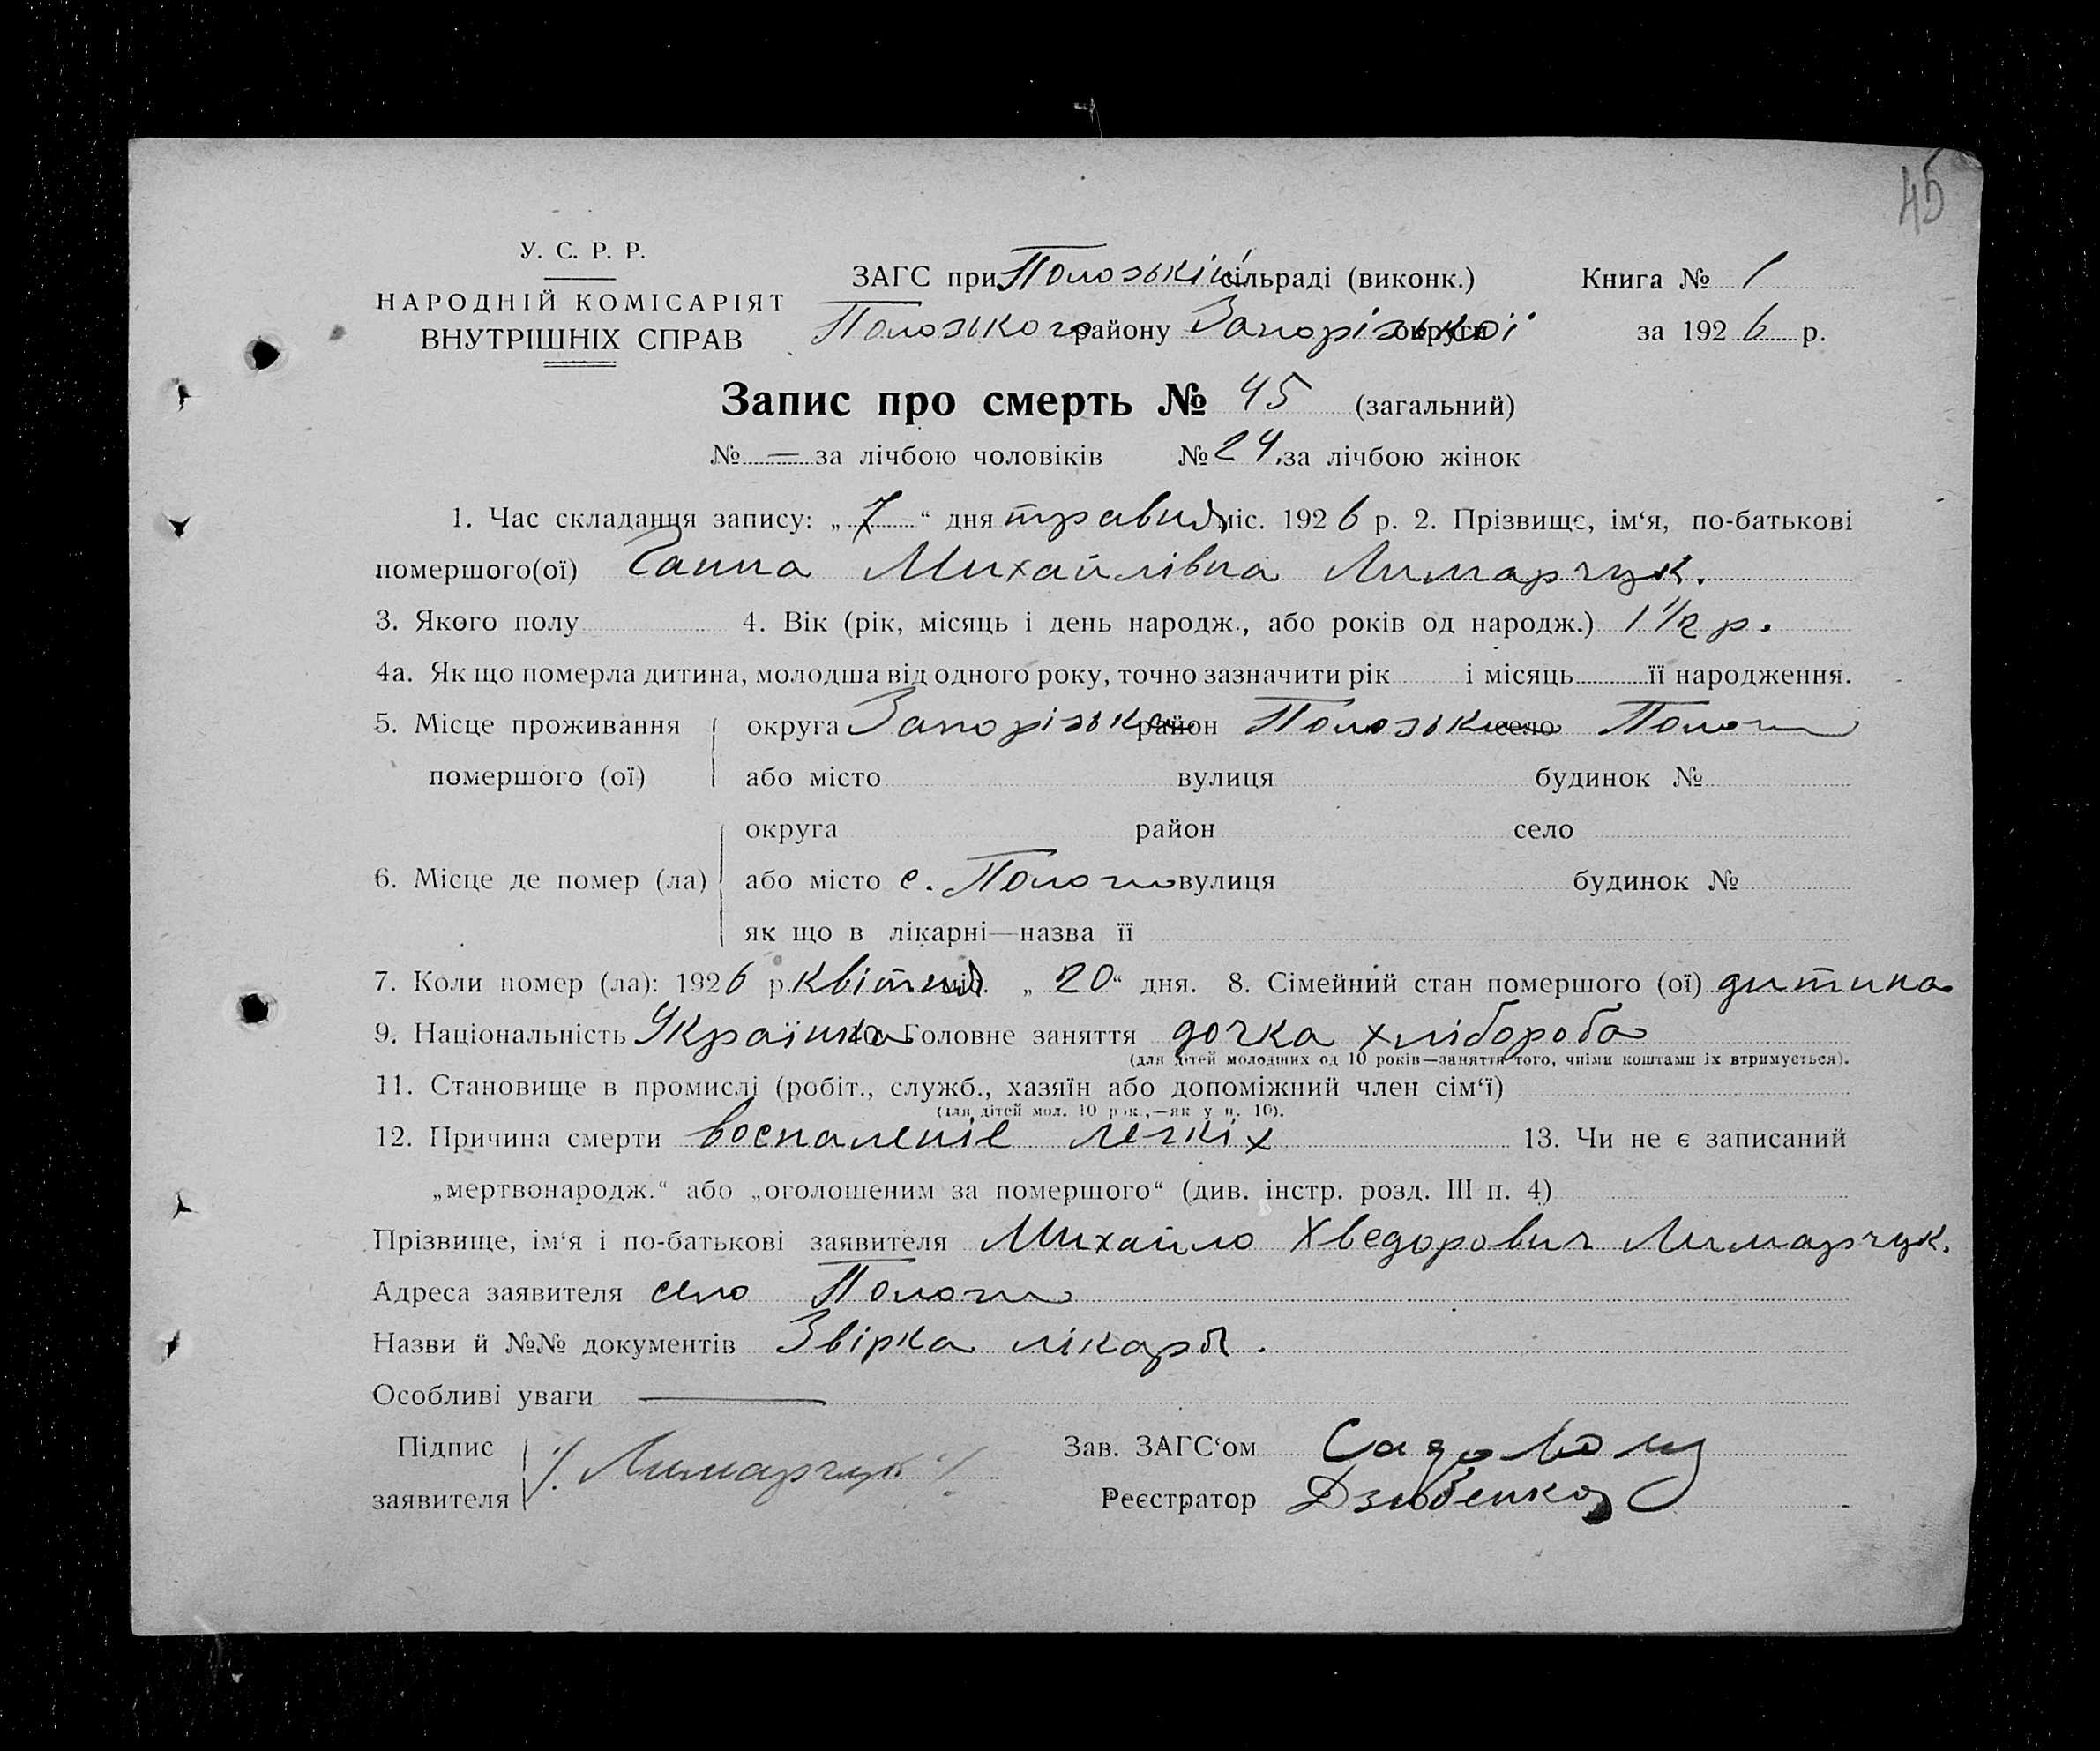 45
У. С. Р. Р.
НАРОДНІЙ КОМІСАРІЯТ
ВНУТРІШНІХ СПРАВ
ЗАГС при Полозькій сільраді (виконк.) Книга № 1
Полозького району Запорізької округи за 1926 р.
Запис про смерть № 45 (загальний)
№ — за лічбою чоловіків № 24 за лічбою жінок
1. Час складання запису: „7“ дня травня міс. 1926 р. 2. Прізвище, ім‘я, по-батькові
помершого(ої) Ганна Михайлівна Лимарчук.
3. Якого полу 4. Вік (рік, місяць і день народж., або років од народж.) 1 1/2 р.
4а. Як що померла дитина, молодша від одного року, точно зазначити рік і місяць її народження.
5. Місце проживання округа Запорізька район Полозьки село Пологи
помершого (ої) або місто вулиця будинок №
округа район село
6. Місце де помер (ла) або місто с. Пологи вулиця будинок №
як що в лікарні—назва її
7. Коли помер (ла): 1926 р. квітня міс. „20“ дня. 8. Сімейний стан помершого (ої) дитина
9. Національність Українка 10. Головне заняття дочка хлібороба
(для дітей молодших од 10 років—заняття того, чиїми коштами їх втримується).
11. Становище в промислі (робіт., служб., хазяїн або допоміжний член сім‘ї)
(для дітей мол. 10 рок.,—як у п. 10).
12. Причина смерти воспаленіе легкіх 13. Чи не є записаний
„мертвонародж.“ або „оголошеним за помершого“ (див. інстр. розд. III п. 4)
Прізвище, ім‘я і по-батькові заявителя Михайло Хведорович Лимарчук.
Адреса заявителя село Пологи
Назви й №№ документів Звірка лікаря.
Особливі уваги —
Підпис Зав. ЗАГС‘ом Садовый
заявителя /. Лимарчук /. Реєстратор Дзюбенко